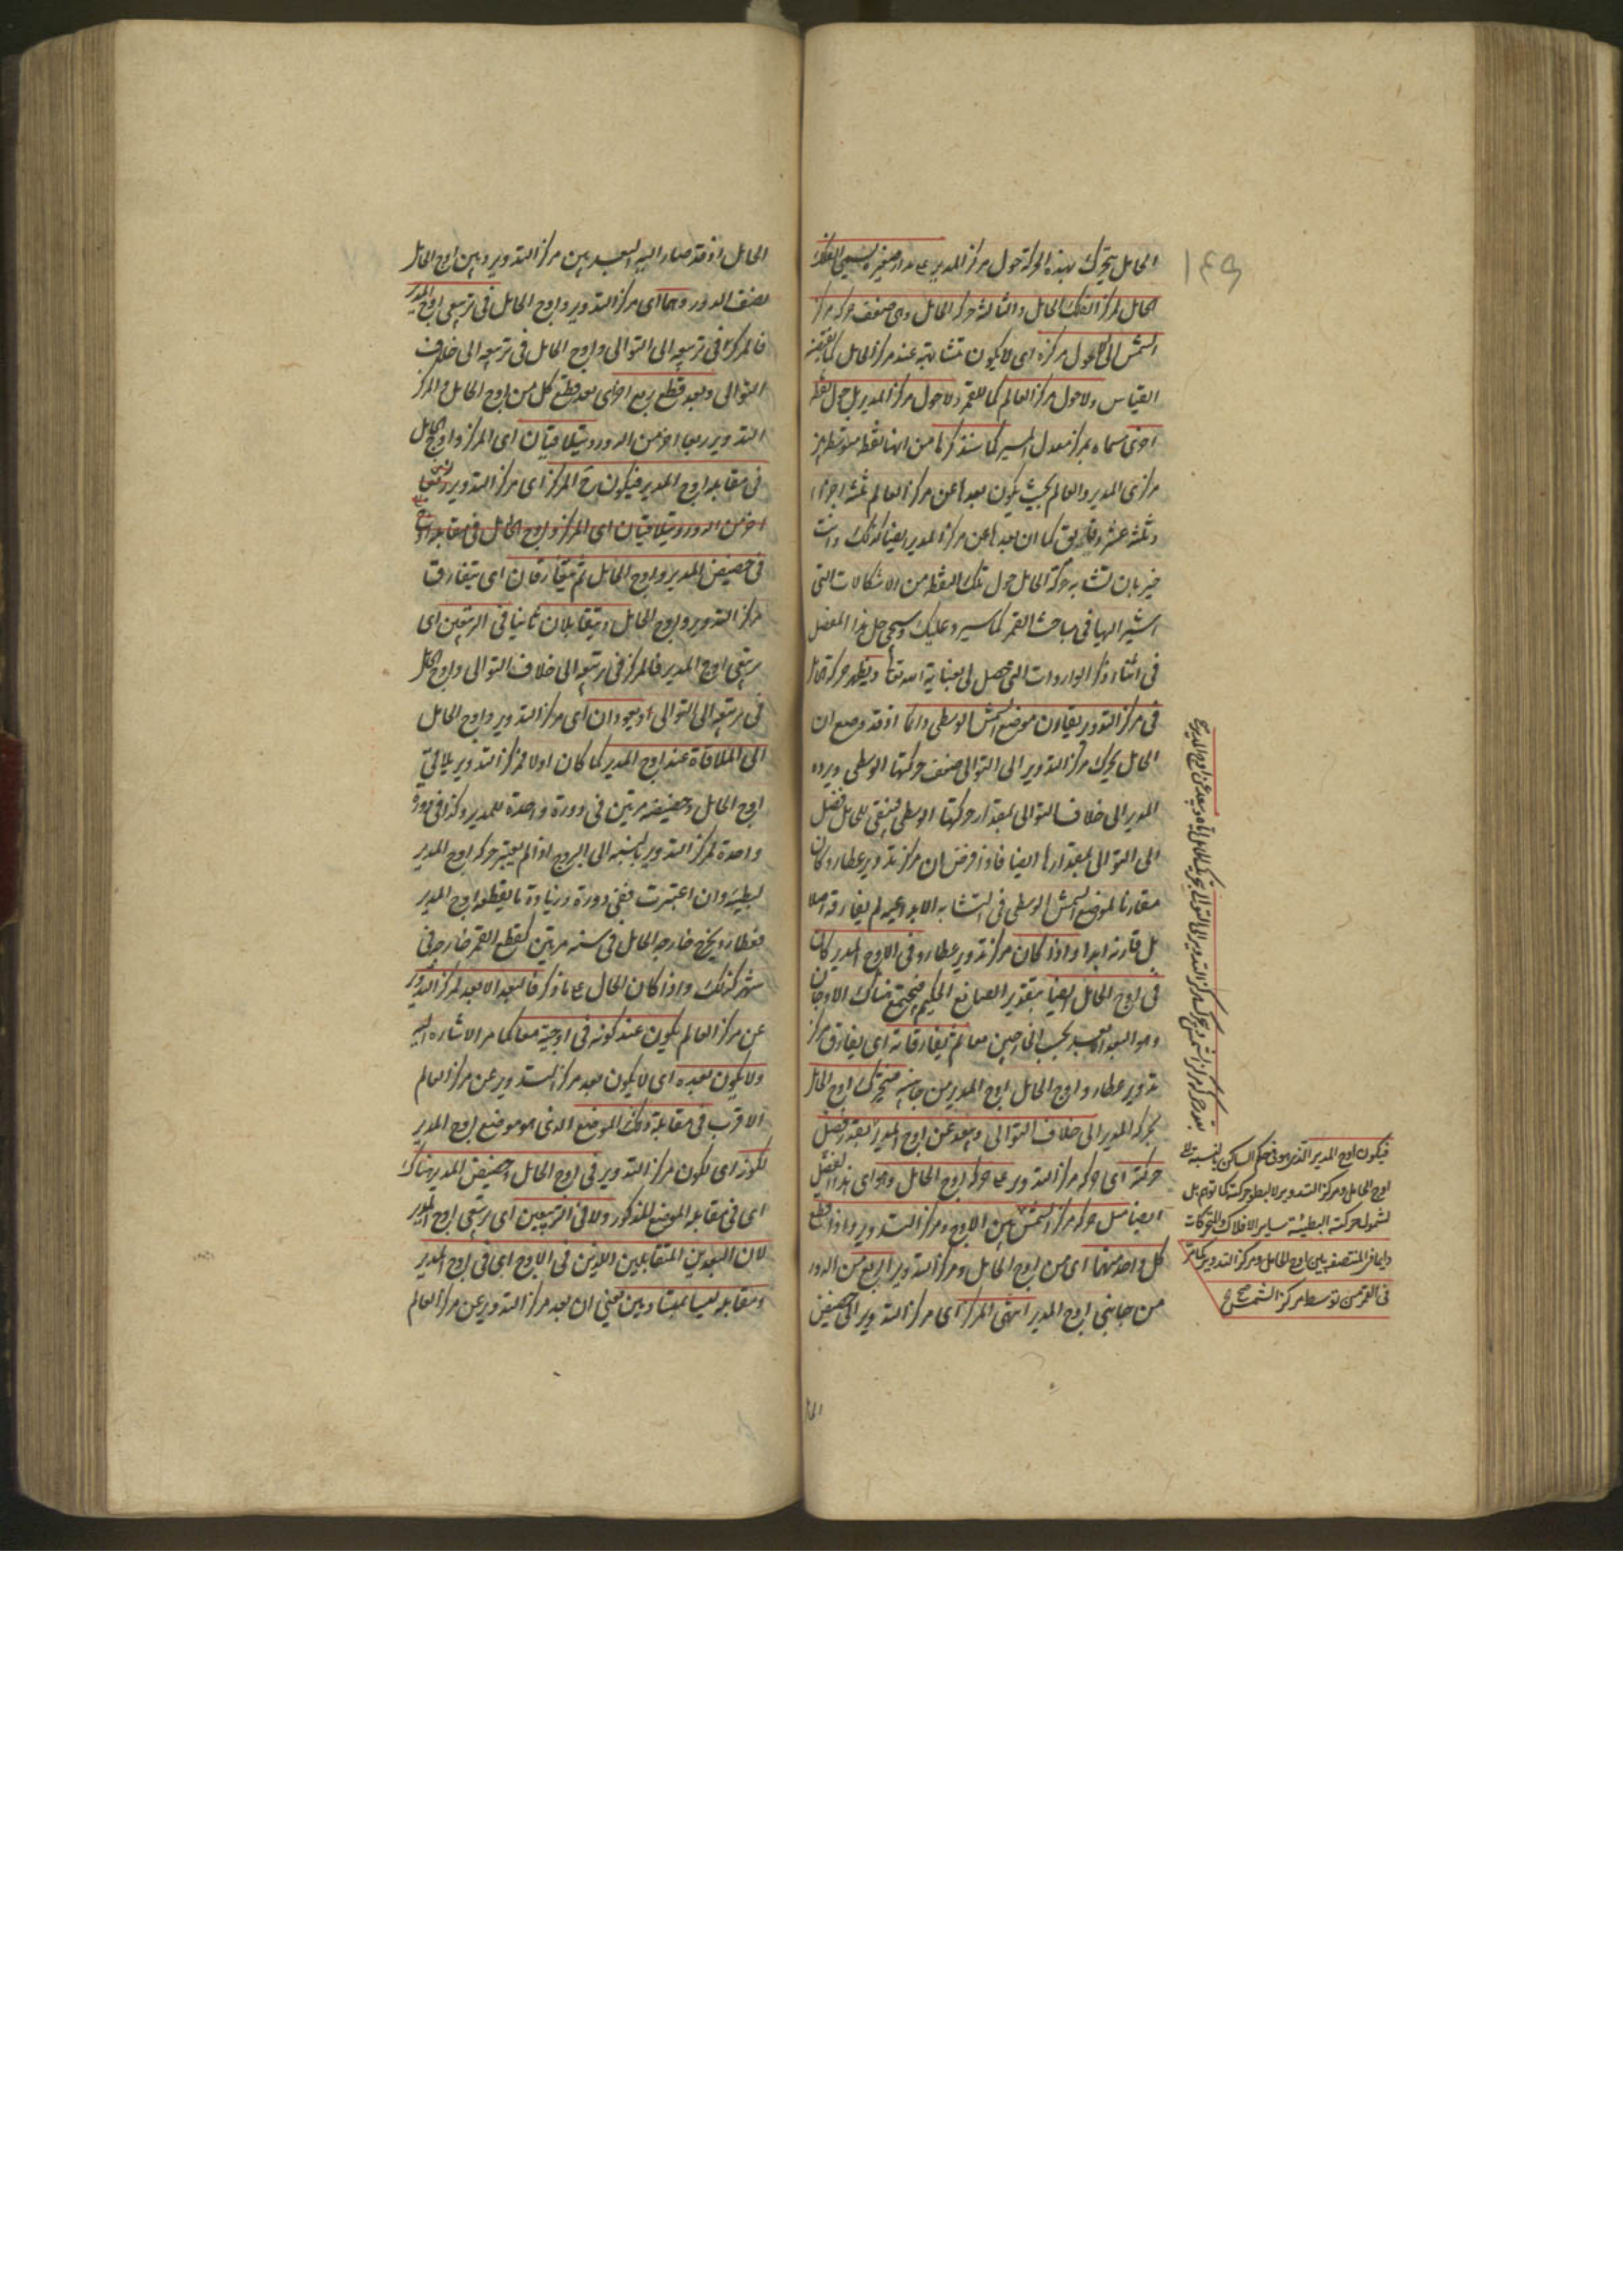 ١٤٩
الحامل يتحرك بهذه الحركة حول مركز المدير على مدار صغير يسمى الفلك
الحامل لمركز الفلك الحامل والثالثة حركة الحامل وهى ضعف حركة مركز
الشمس الى حول مركزه اى لا يكون متشابهة عند مركز الحامل كما يقتضيه
القياس ولا حول مركز العالم كما للقمر ولا حول مركز المدير بل حول نقطة
اخرى مسماة بمركز معدل المسير كما سنذكرها من انها نقطة متوسطة بين
مركزى المدير والعالم بحيث يكون بعدها عن مركز العالم ثلثة اجزاء
وثلثة عشر دقايق كما ان بعدها عن مركز المدير ايضا كذلك وانت
خبير بان تشابه حركة الحامل حول تلك النقطة من الاشكالات التى
اشير اليها فى مباحث القمر كما سيرد عليك وسيجئ حل هذا المعضل
فى اثناء ذكر الواردات التى تحصل لى بعناية الله تعالى ويظهر حركة الحامل
فى مركز التدوير يقارن موضع الشمس الوسطى دائما اذ قد وضع ان
الحامل يحرك مركز التدوير الى التوالى ضعف حركتها الوسطى ويرده
المدير الى خلاف التوالى بمقدار حركتها الوسطى فيبقى للحامل فضل
الى التوالى بمقدارها ايضا فاذا فرض ان مركز تدوير عطارد كان
مقارنا لموضع الشمس الوسطى فى التشابه الابداعية لم يفارقه اصلا
بل قارنه ابدا واذا كان مركز تدوير عطارد فى الاوج المدير كان
فى اوج الحامل ايضا بتقدير الصانع الحكيم فيجتمع هناك الاوجان
وهو البعد الابعد بحسب الخارجين معا ثم يفارقانه اى يفارق مركز
تدوير عطارد واوج الحامل اوج المدير من جانبيه فيتحرك اوج الحامل
بحركة المدير الى خلاف التوالى ويبعد عن اوج المدير بقدر فضل
حركته اى حركة مركز التدوير على حركة اوج الحامل وهو اى هذا الفضل
ايضا مثل حركة مركز الشمس بين الاوج ومركز التدوير واذا قطع
كل واحد منهما اى من اوج الحامل ومركز التدوير الربع من الدور
من جانبى اوج المدير انتهى المركز اى مركز التدوير الى حضيض
فيكون اوج المدير الذى هو فى حكم الساكن بالنسبة الى
اوج الحامل ومركز التدوير لا لبطؤ حركته كما توهم بل
لشمول حركته البطيئة ساير الافلاك المتحركات
دايما فى المنتصف بين اوج الحامل ومركز التدوير كما مر
فى القمر من توسط مركز الشمس صح
الحامل اذ قد صار البعد بين مركز التدوير وبين اوج الحامل
نصف الدور وهما اى مركز التدوير واوج الحامل فى تربيعى اوج المدير
فالمركز فى تربيعه الى التوالى واوج الحامل فى تربيعه الى خلاف
التوالى وبعد قطع ربع اخرى بعد قطع كل من اوج الحامل والمركز
التدوير ربعا اخر من الدور يتلاقيان اى المركز واوج الحامل
فى مقابلة اوج المدير فيكون المركز اى مركز التدوير
اخر من الدور ويتلاقيان اى المركز واوج الحامل فى مقابلة اوج
فى حضيض المدير واوج الحامل ثم يتفارقان اى يتفارق
مركز التدوير واوج الحامل ويتقابلان ثانيا فى التربيعين اى
تربيعى اوج المدير فالمركز فى تربيعه الى خلاف التوالى واوج الحامل
فى تربيعه الى التوالى ويعودان اى مركز التدوير واوج الحامل
الى الملاقاة عند اوج المدير كما كان اولا فمركز التدوير يلاقى
اوج الحامل وحضيضه مرتين فى دورة واحدة للمدير وكذا فى دورة
واحدة لمركز التدوير بالنسبة الى البروج اذا لم يعتبر حركة اوج المدير
لبطئه وان اعتبرت ففى دورة وزيادة ما يقطعه اوج المدير
فعطارد يخرج خارجه الحامل فى سنة مرتين كقطع القمر خارجه فى
شهر كذلك واذا كان الحال على ما ذكر فالبعد الابعد لمركز التدوير
عن مركز العالم يكون عند كونه فى اوجيه معا كما مر الاشارة اليه
ولا يكون بعده اى لا يكون بعد مركز التدوير عن مركز العالم
الاقرب فى مقابلة ذلك الموضع الذى هو موضع اوج المدير
لكونه اى لكون مركز التدوير فى اوج الحامل وحضيض المدير هناك
اى فى مقابلة الموضع المذكور ولا فى التربيعين اى تربيعى اوج المدير
لان البعدين المتقابلين والذين فى الاوج اى فى اوج المدير
ومقابله ليسا بمتساويين يعنى ان بعد مركز التدوير عن مركز العالم